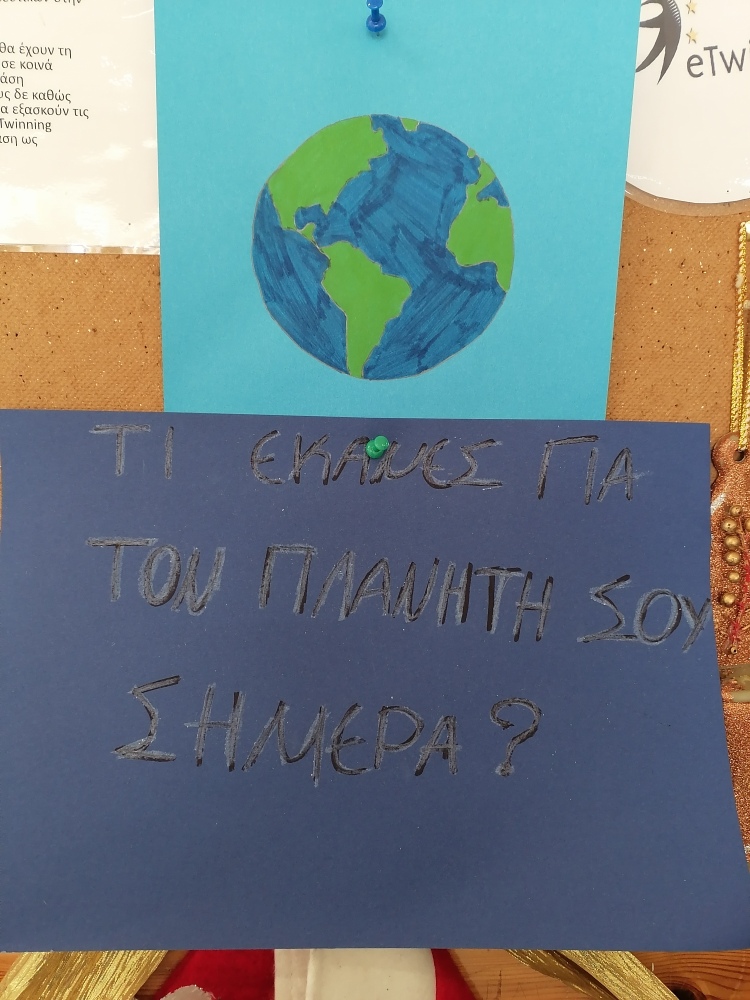 θα έχουν τη
σε κοινά
δε καθώς
εξασκούν τις
Twinning
ως
eTwi
ΤΙ ΕΚΑΝΕΣ ΓΙΑ
ΤΟΝ ΠΛΑΝΗΤΗ ΣΟΥ
ΣΗΜΕΡΑ?